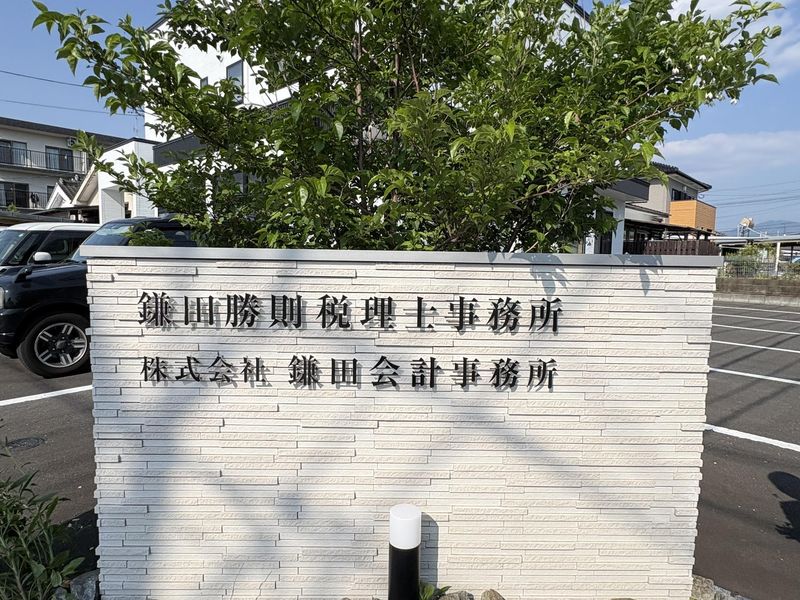 鎌田勝則税理士事務所
株式会社 鎌田会計事務所